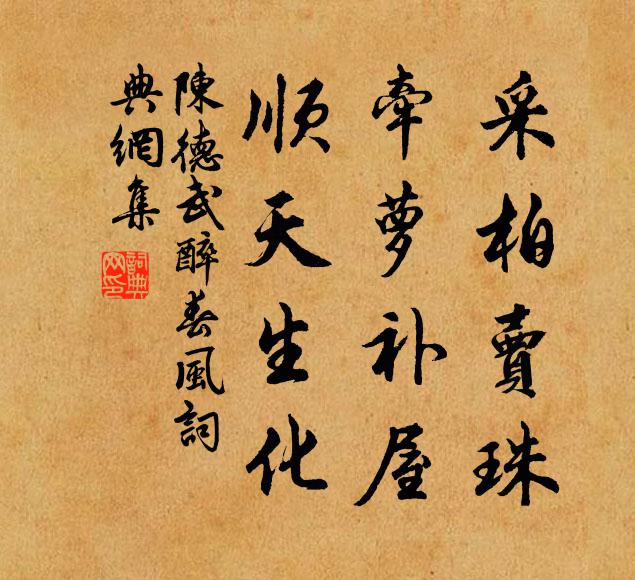 采柏賣珠
牽萝补屋
順天生化
陳德武醉春風詞
典網集
詞典网印